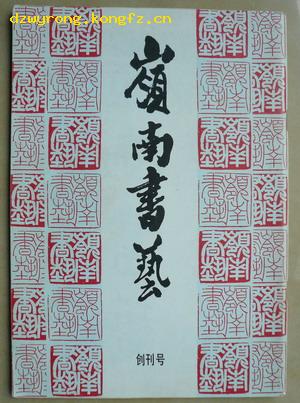 dzwyrong.kongfz.cn
嶺南書藝
创刊号